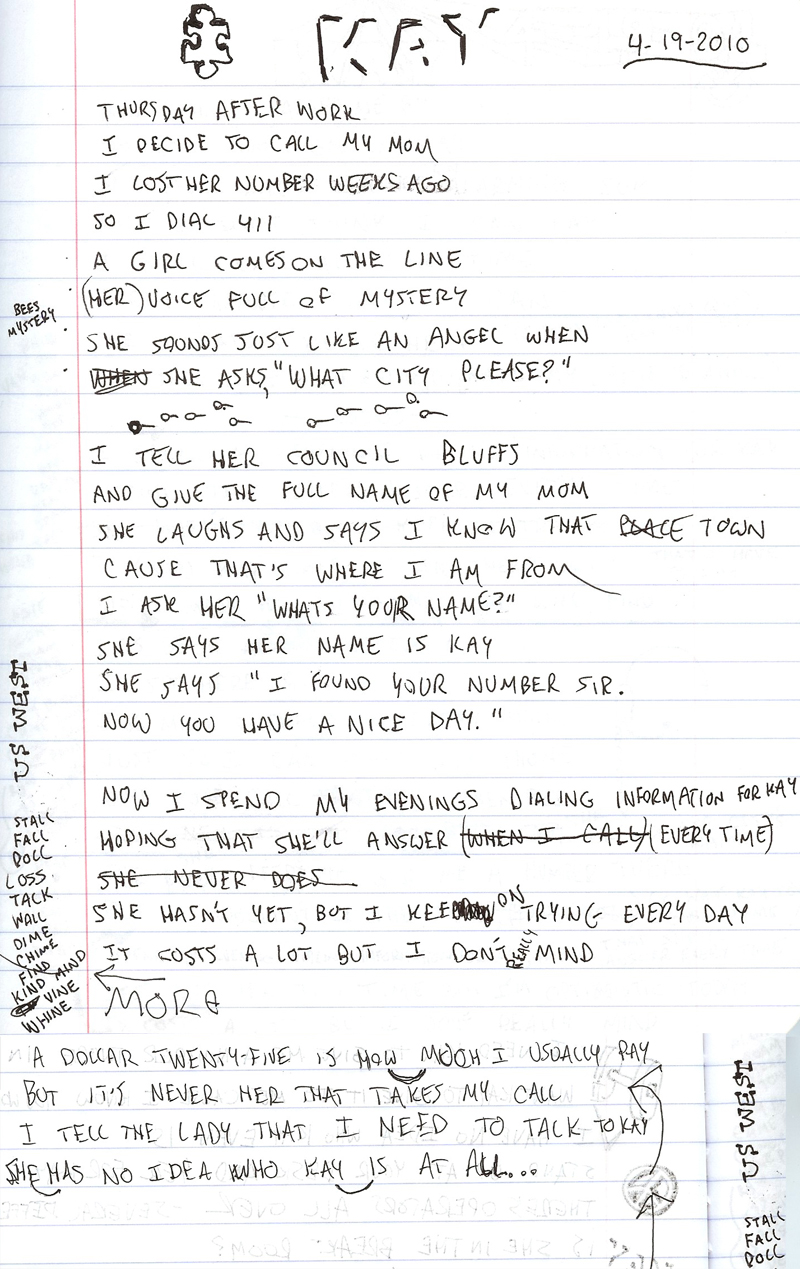 KAY
4-19-2010
THURSDAY AFTER WORK
I DECIDE TO CALL MY MOM
I LOST HER NUMBER WEEKS AGO
SO I DIAL 411
A GIRL COMES ON THE LINE
(HER) VOICE FULL OF MYSTERY
BEES
MYSTERY
SHE SOUNDS JUST LIKE AN ANGEL WHEN
WHEN SHE ASKS, "WHAT CITY PLEASE?"
I TELL HER COUNCIL BLUFFS
AND GIVE THE FULL NAME OF MY MOM
SHE LAUGHS AND SAYS I KNOW THAT PLACE TOWN
CAUSE THAT'S WHERE I AM FROM
I ASK HER "WHATS YOUR NAME?"
SHE SAYS HER NAME IS KAY
SHE SAYS "I FOUND YOUR NUMBER SIR.
NOW YOU HAVE A NICE DAY."
US WEST
NOW I SPEND MY EVENINGS DIALING INFORMATION FOR KAY
HOPING THAT SHE'LL ANSWER (WHEN I CALL) (EVERY TIME)
SHE NEVER DOES
SHE HASN'T YET, BUT I KEEP ON TRYING EVERY DAY
IT COSTS A LOT BUT I DON'T REALLY MIND
MORE
STALL
FALL
DOLL
LOSS
TALK
WALL
DIME
CHIME
FIND
KIND MIND
VINE
WHINE
A DOLLAR TWENTY-FIVE IS HOW MUCH I USUALLY PAY
BUT IT'S NEVER HER THAT TAKES MY CALL
I TELL THE LADY THAT I NEED TO TALK TO KAY
SHE HAS NO IDEA WHO KAY IS AT ALL...
US WEST
STALL
FALL
DOLL